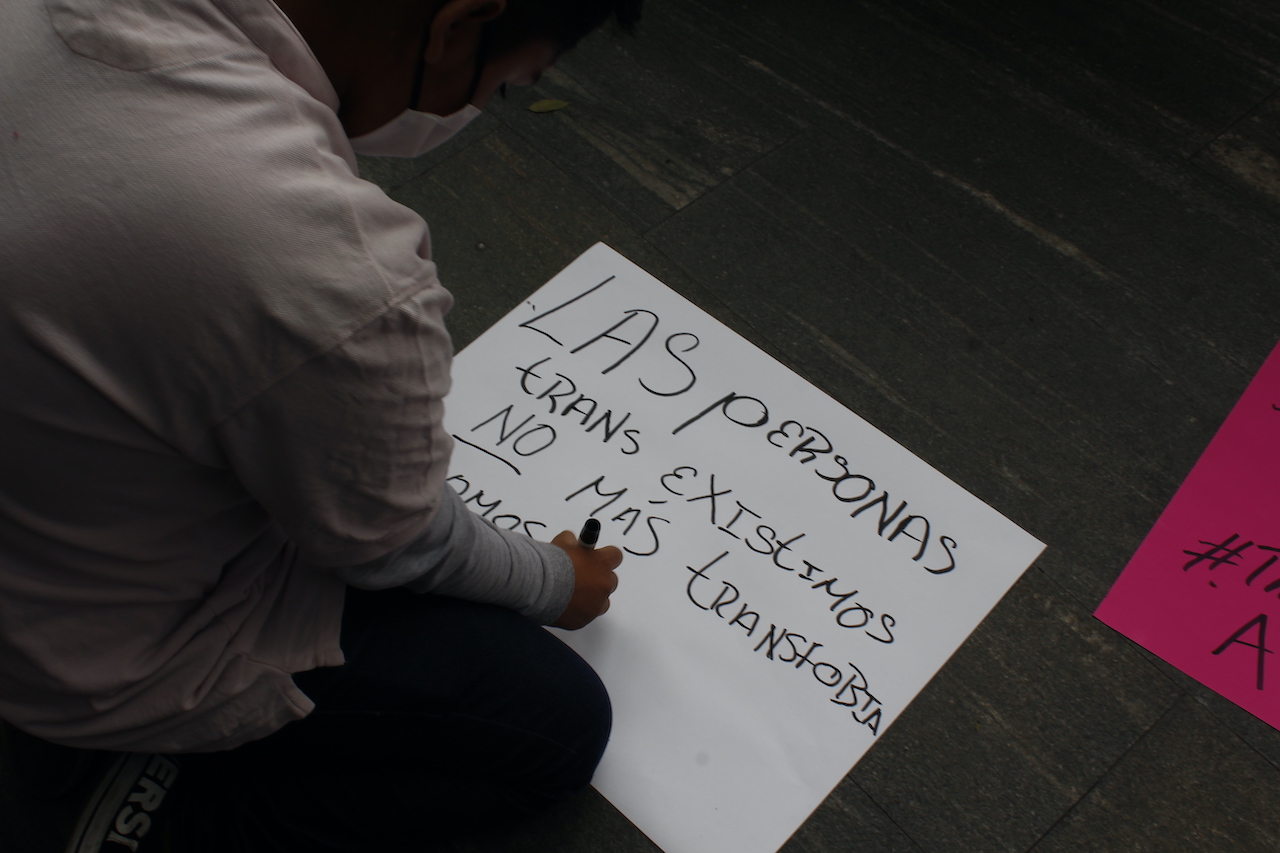 LAS PERSONAS
TRANS EXISTIMOS
NO MÁS TRANSFOBIA
OMOS
#T
A
ERSI